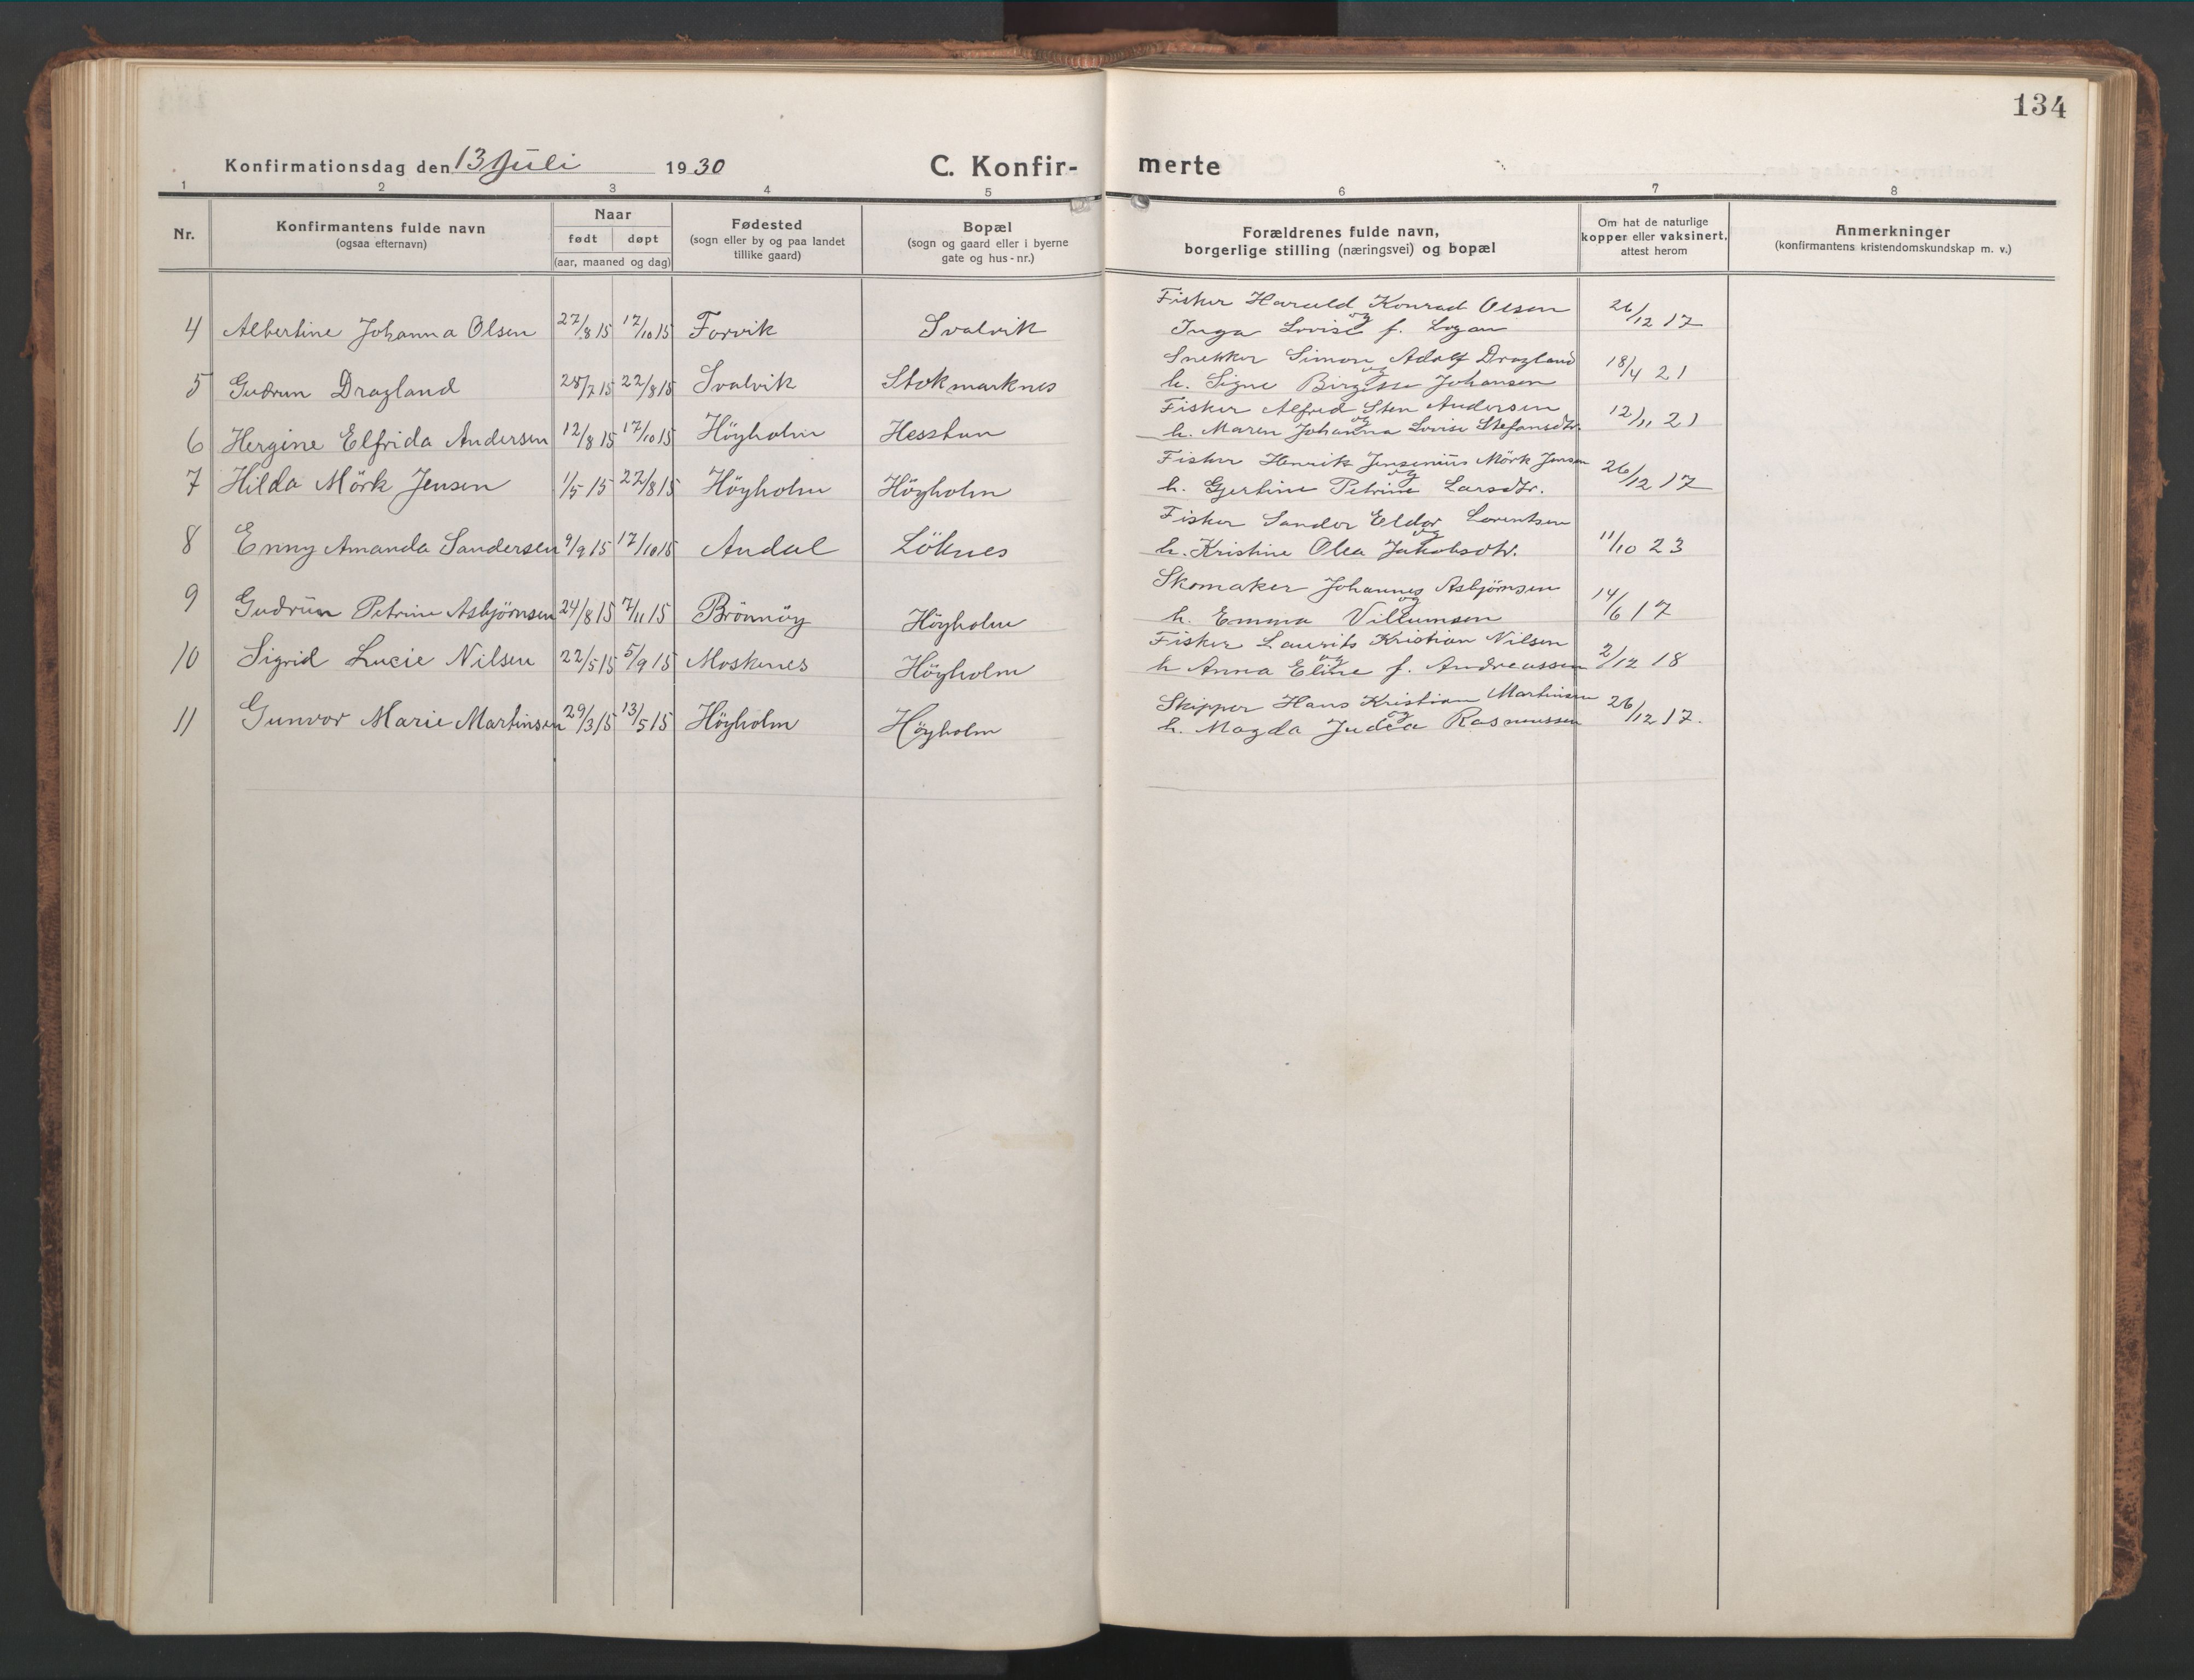 134
Konfirmationsdag den 13 Juli 1930 C. Konfir- merte
1 2 3 4 5 6 7 8
Nr.
Konfirmantens fulde navn
(ogsaa efternavn)
Naar
født døpt
(aar, maaned og dag)
Fødested
(sogn eller by og paa landet
tillike gaard)
Bopæl
(sogn og gaard eller i byerne
gate og hus-nr.)
Forældrenes fulde navn,
borgerlige stilling (næringsvei) og bopæl
Om hat de naturlige
kopper eller vaksinert,
attest herom
Anmerkninger
(konfirmantens kristendomskundskap m. v.)
4 Albertine Johanna Olsen 27/8 15 17/10 15 Forvik Svalvik
Fisker Harald Konrad Olsen
og
Inga Lovise f. Logan
26/12 17
5 Gudrun Dragland 28/7 15 22/8 15 Svalvik Stokmarknes
Snekker Simon Adolf Dragland
og
h. Signe Birgitte Johansen
18/4 21
6 Hergine Elfrida Andersen 12/8 15 17/10 15 Höyholm Hesstun
Fisker Alfred Sten Andersen
og
h. Maren Johanna Lovise Stefansdtr.
12/11 21
7 Hilda Mörk Jensen 1/5 15 22/8 15 Höyholm Höyholm
Fisker Henrik Jensenius Mörk Jensen
og
h. Gjertine Petrine Larsdtr.
26/12 17
8 Enny Amanda Sandersen 9/9 15 17/10 15 Andal Löknes
Fisker Sander Eldor Lorentsen
og
h. Kristine Olea Jakobsdtr.
11/10 23
9 Gudrun Petrine Asbjørnsen 24/8 15 7/11 15 Brönnöy Höyholm
Skomaker Johannes Asbjørnsen
og
h. Emma Villumsen
14/6 17
10 Sigrid Lucie Nilsen 22/5 15 5/9 15 Moskenes Höyholm
Fisker Laurits Kristian Nilsen
og
h Anna Eline f. Andreassen
2/12 18
11 Gunvor Marie Martinsen 29/3 15 13/5 15 Höyholm Höyholm
Skipper Hans Kristian Martinsen
og
h. Magda Judea Rasmussen
26/12 17.